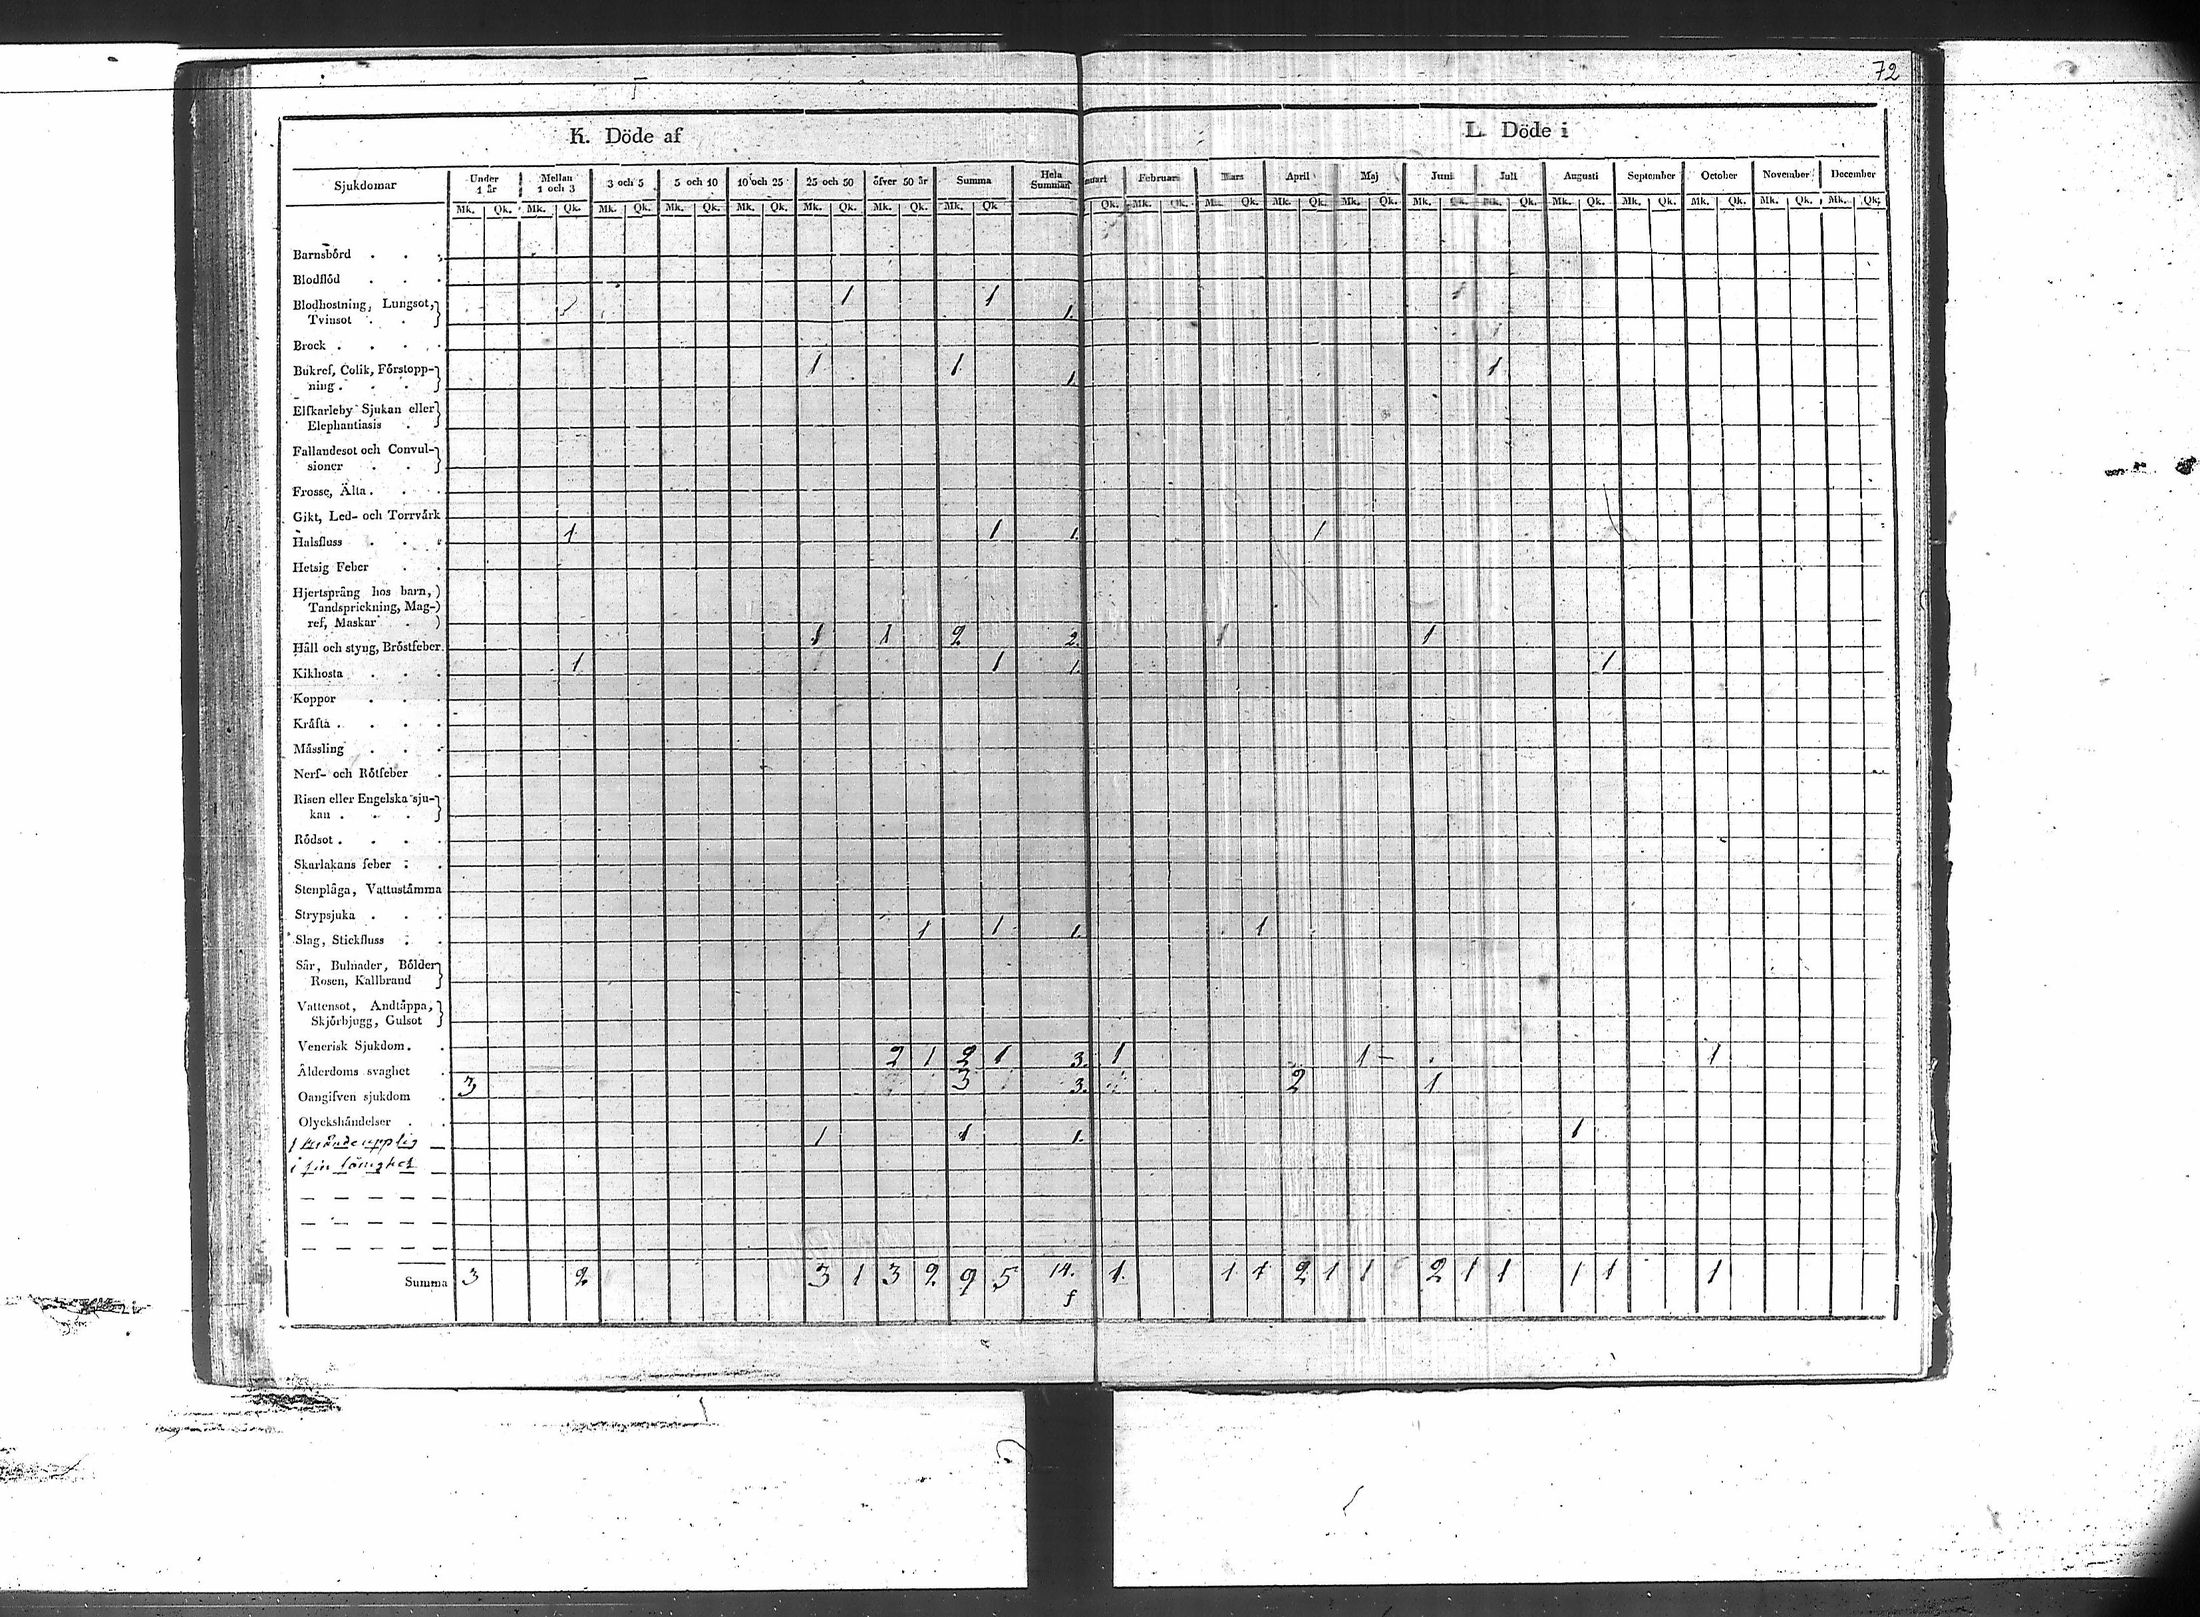 72
K. Döde af
L. Döde i
Sjukdomar Under 1 år Mellan 1 och 3 3 och 5 5 och 10 10 och 25 25 och 50 öfver 50 år Summa Hela Summan nuari Februari Mars April Maj Juni Juli Augusti September October November December
Mk. Qk. Mk. Qk. Mk. Qk. Mk. Qk. Mk. Qk. Mk. Qk. Mk. Qk. Mk. Qk. Qk. Mk. Qk. Mk. Qk. Mk. Qk. Mk. Qk. Mk. Qk. Mk. Qk. Mk. Qk. Mk. Qk. Mk. Qk. Mk. Qk. Mk. Qk.
Barnsbörd
Blodflöd
Blodhostning, Lungsot, 1 1 1. 1
Tvinsot
Brock
Bukref, Colik, Förstopp- 1 1 1. 1
ning
Elfkarleby Sjukan eller
Elephantiasis
Fallandesot och Convul-
sioner
Frosse, Älta
Gikt, Led- och Torrvärk
Halsfluss 1 1 1. 1
Hetsig Feber
Hjertsprång hos barn,
Tandsprickning, Mag-
ref, Maskar
Håll och styng, Bröstfeber 1 1 2 2. 1 1
Kikhosta 1 1 1. 1
Koppor
Kräfta
Mässling
Nerf- och Rötfeber
Risen eller Engelska sju-
kan
Rödsot
Skarlakans feber
Stenplåga, Vattustämma
Strypsjuka
Slag, Stickfluss 1 1 1. 1
Sår, Bulnader, Bölder
Rosen, Kallbrand
Vattensot, Andtäppa,
Skjörbjugg, Gulsot
Venerisk Sjukdom
Ålderdoms svaghet 2 1 2 1 3. 1 1 1
Oangifven sjukdom 3 3 3. 2 1
Olyckshändelser
1 1 1. 1
i sin
Summa 3 2 3 1 3 2 9 5 14. 1. 1 1 2 1 1 2 1 1 1 1 1
f